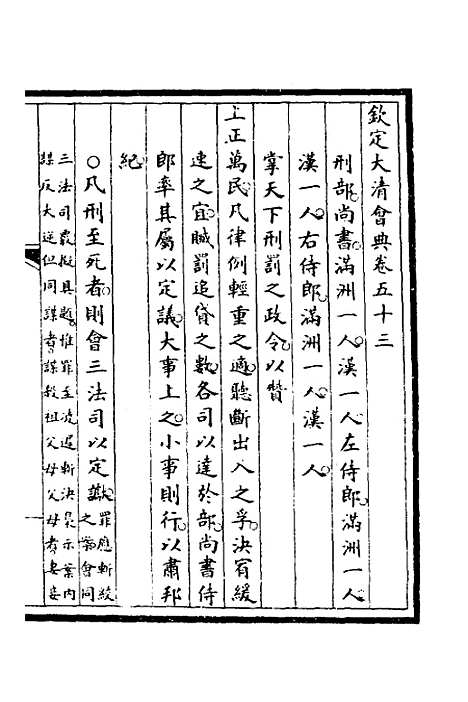 欽定大清會典卷五十三
刑部尚書滿洲一人漢一人左侍郎滿洲一人
漢一人右侍郎滿洲一人漢一人
掌天下刑罰之政令以贊
上正萬民凡律例輕重之適聽斷出入之孚決宥緩
速之宜贓罰追貸之數各司以達於部尚書侍
郎率其屬以定議大事上之小事則行以肅邦
紀
○凡刑至死者則會三法司以定讞罪應斬絞
之案會同
三法司覆擬具題惟罪至凌遲斬決梟示案內
謀反大逆但同謀者謀殺祖父母父母者妻妾